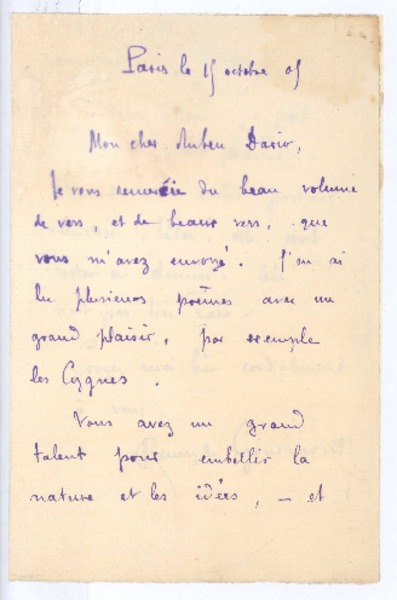 Paris le 15 octobre 05
Mon cher Ruben Dario,
Je vous remercie du beau volume
de vers, et de beaux vers, que
vous m'avez envoyé. J'en ai
lu plusieurs poèmes avec un
grand plaisir, par exemple
les Cygnes.
Vous avez un grand
talent pour embellir la
nature et les idées, — et